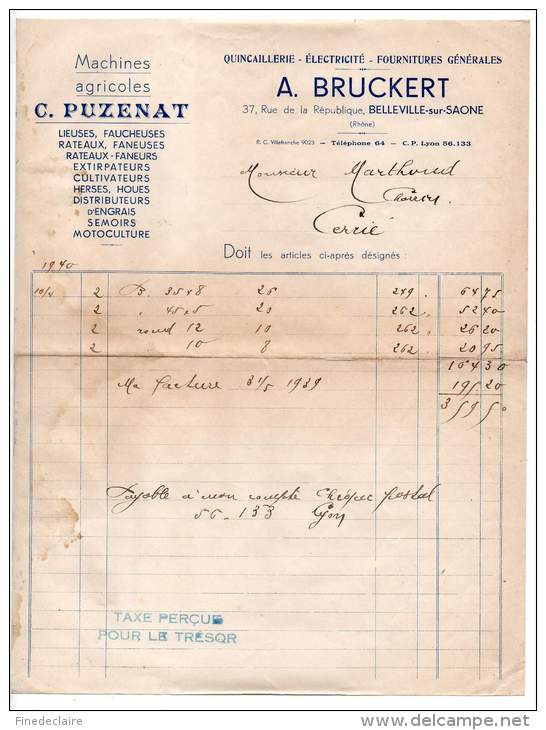 Machines
agricoles
C. PUZENAT
LIEUSES, FAUCHEUSES
RATEAUX, FANEUSES
RATEAUX-FANEURS
EXTIRPATEURS
CULTIVATEURS
HERSES, HOUES
DISTRIBUTEURS
D'ENGRAIS
SEMOIRS
MOTOCULTURE
QUINCAILLERIE - ÉLECTRICITÉ - FOURNITURES GÉNÉRALES
A. BRUCKERT
37, Rue de la République, BELLEVILLE-sur-SAONE
(Rhône)
R. C. Villefranche 9023 — Téléphone 64 — C. P. Lyon 56.133
Monsieur Marthoud
Cercié
Doit les articles ci-après désignés :
1940
10/4 2 B. 35x8 26 249 . 64 75
2 " 45x5 20 262 " 52 40
2 rond 12 10 262 " 26 20
2 10 8 262 . 20 95
164 30
Ma facture 31/5 1939 195 20
359 50
Payable à mon compte cheque postal
56-133 Lyon
TAXE PERÇUE
POUR LE TRÉSOR
Finedeclaire
www.delcampe.net